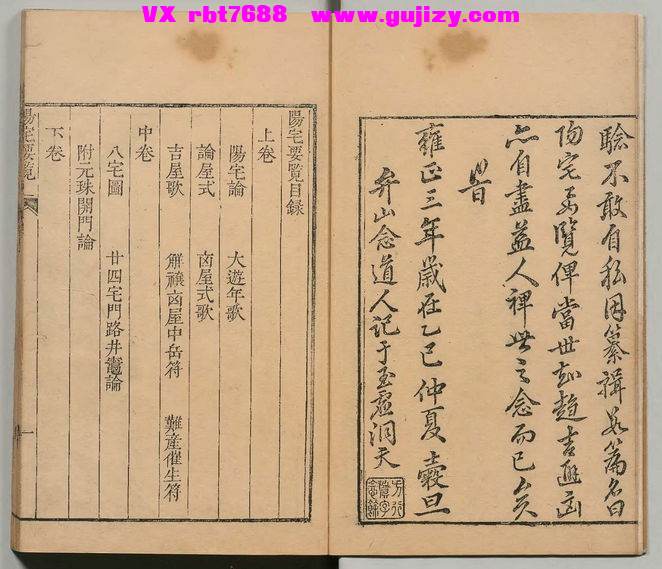 VX rbt7688 www.gujizy.com
驗不敢自私因纂輯是篇名曰
陽宅要覽俾當世知趨吉避凶
亦自盡益人裨世之念而已矣
旹
雍正三年歲在乙巳仲夏穀旦
弁山念道人記于玉虛洞天
陽宅要覽目錄
上卷
陽宅論 大遊年歌
論屋式 凶屋式歌
吉屋歌 觧禳凶屋中岳符 難產催生符
中卷
八宅圖 廿四宅門路井竈論
附元珠開門論
下卷
陽宅要覽
一